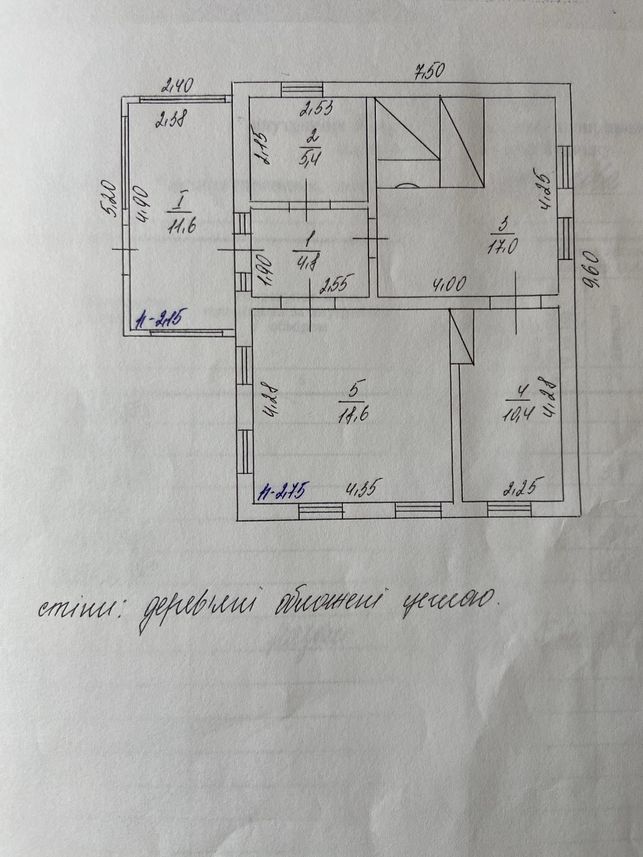 7,50
2,40
2,38
2,53
2,15
2
5,4
5,20
4,90
I
11.6
4,25
3
17.0
1
4.8
1,90
2,55
4,00
9,60
h-2,15
4,28
5
18,6
4
10,4
4,28
h-2,75
4,35
2,25
стіни: дерев'яні обложені цеглою.